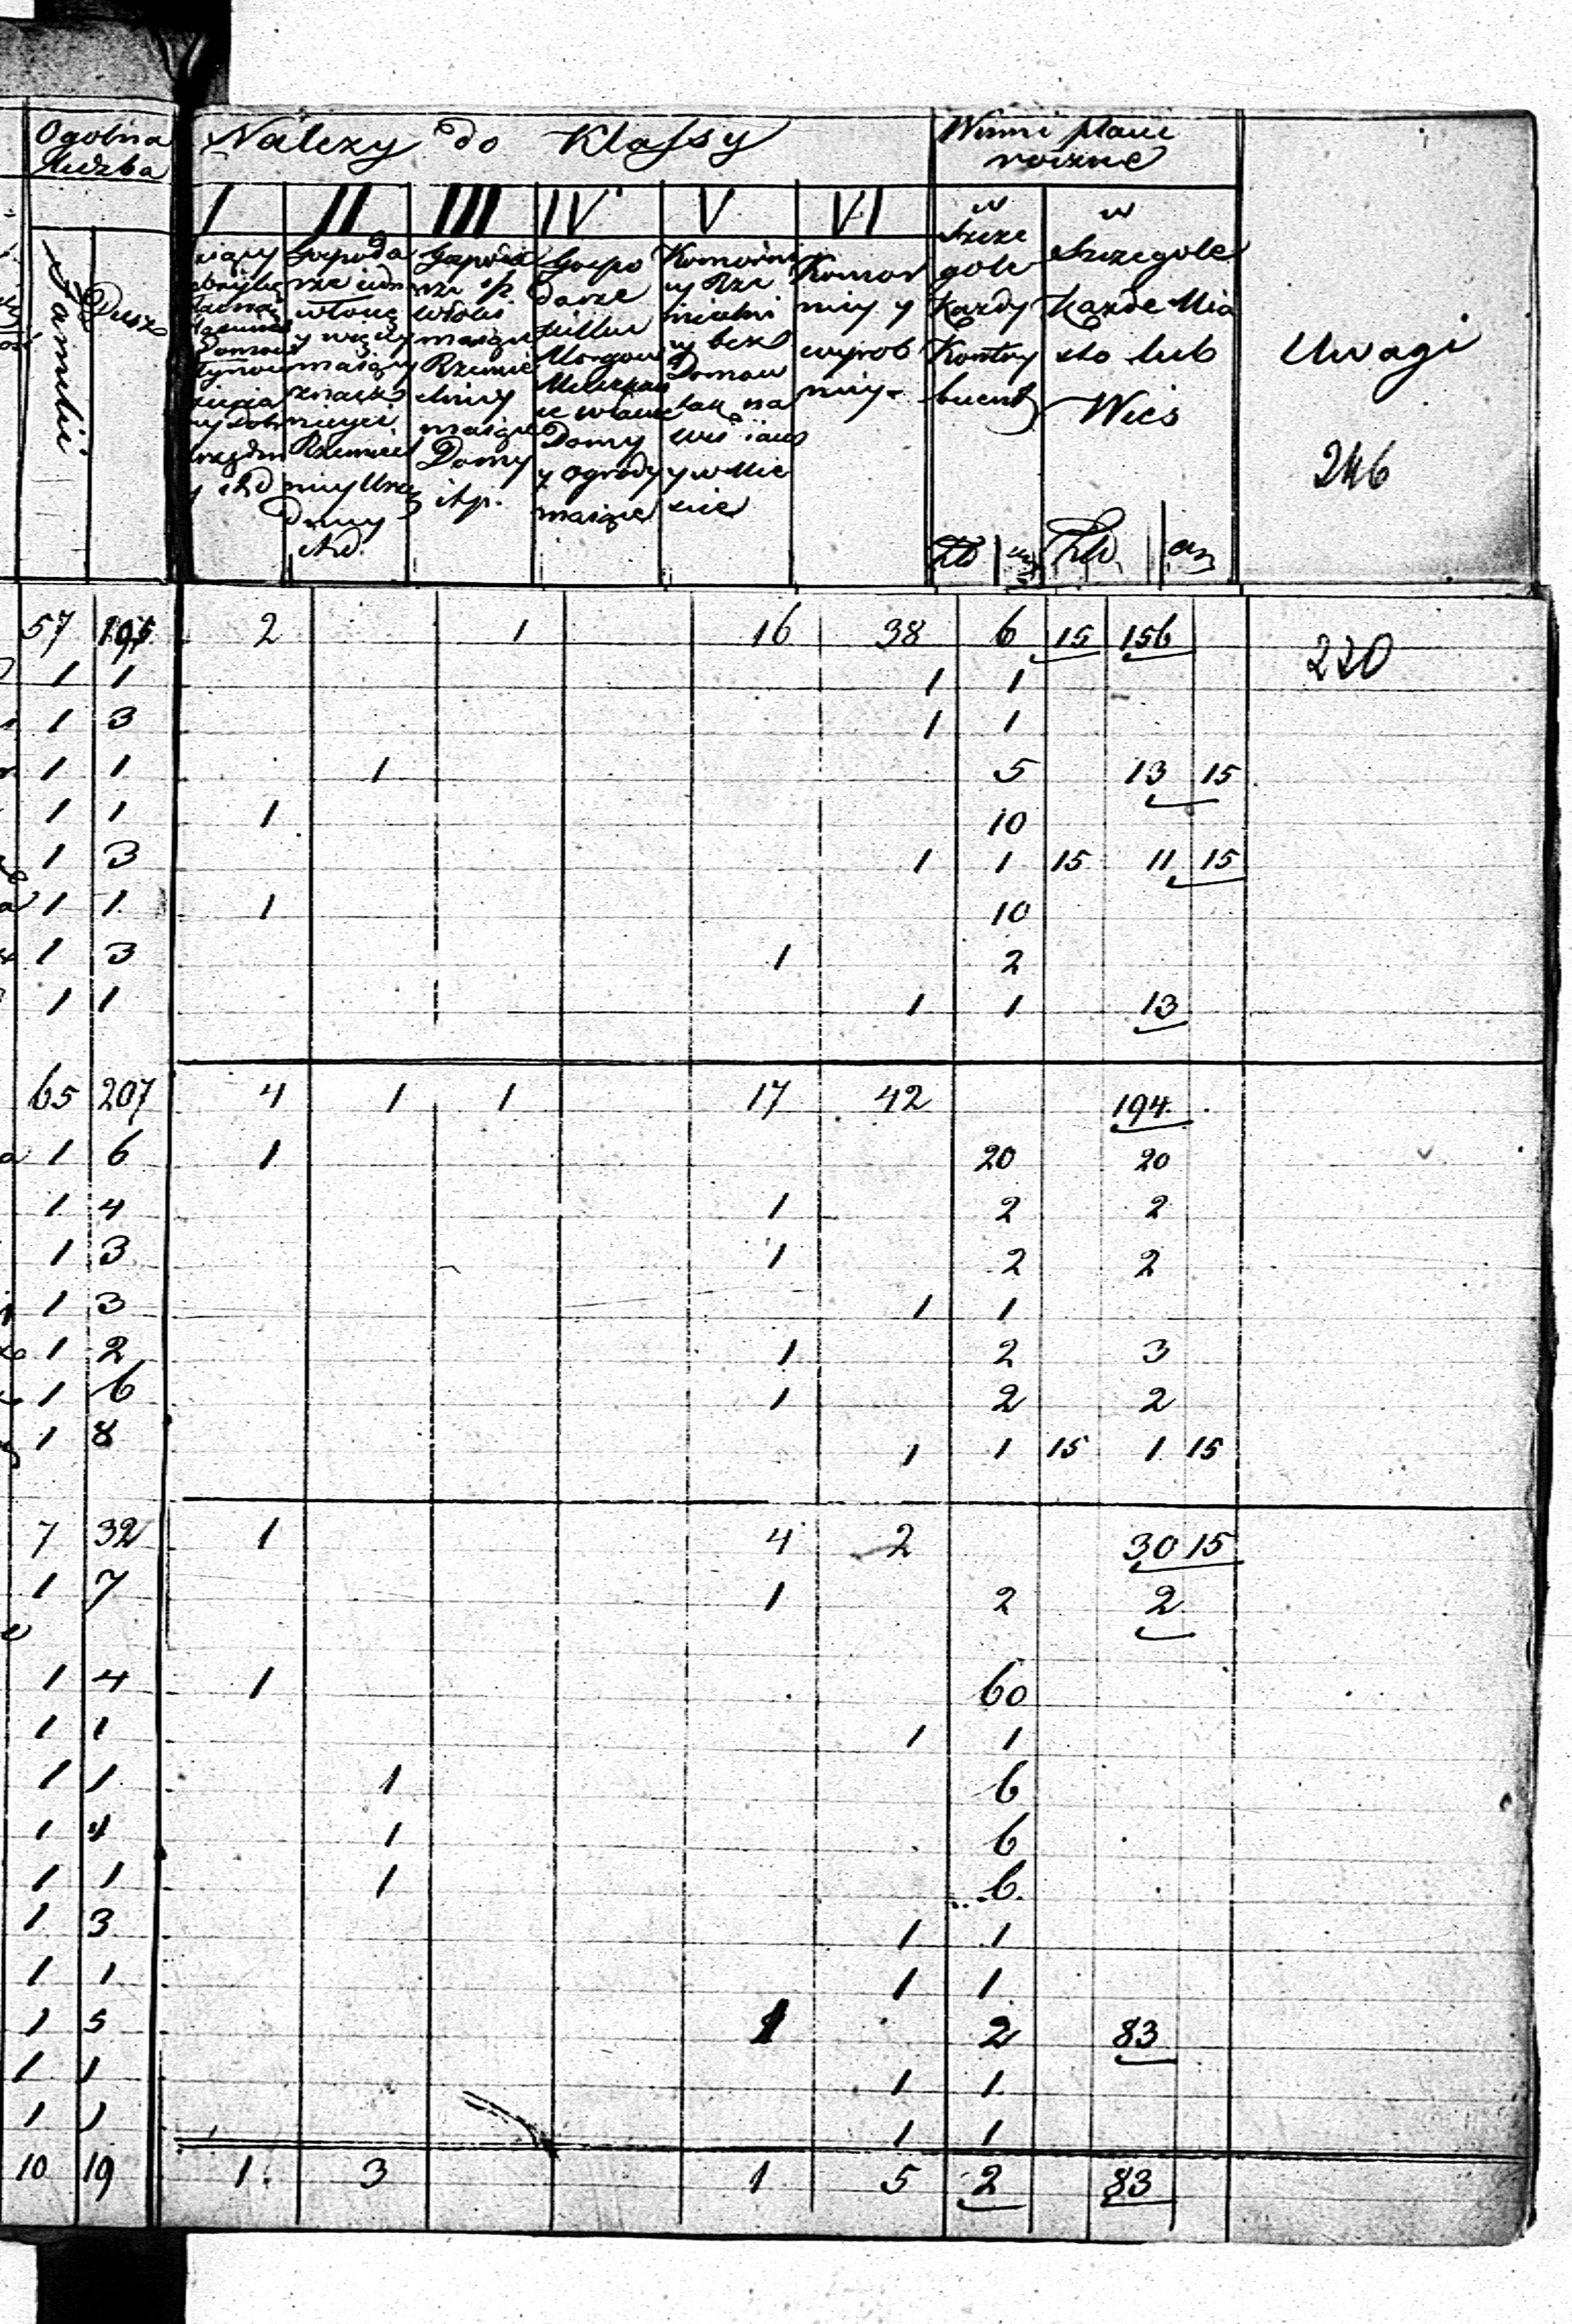 Ogolna Należy do Klassy Winni płacić
liczba roczne
I II III IV V VI w w
Familii Dusz
Gospoda Gospoda Gospo Komorni Szcze Szczegole
darze Komor gole
włókę włoki killku nicy y Każdy Każde Mia
y więcey maiące Morgow y bez wyrob Kontry sto lub
maiący Rzemie Domow nicy buent Wieś
maiące ze własne tak na
Rzemieśl Domy Domy wsi iako
y itd nicy itp. y ogrody y w Mie
Domy maiące ście
itd.
Zł Zł gr
Uwagi
246
57 195 2 1 16 38 6 15 156 220
1 1 1 1
1 3 1 1
1 1 1 5 13 15
1 1 1 10
1 3 1 1 15 11 15
1 1 1 10
1 3 1 2
1 1 1 1 13
65 207 4 1 1 17 42 194
1 6 1 20 20
1 4 1 2 2
1 3 1 2 2
1 3 1 1
1 2 1 2 3
1 6 1 2 2
1 8 1 1 15 1 15
7 32 1 4 2 30 15
1 7 1 2 2
1 4 1 60
1 1 1 1
1 1 1 6
1 4 1 6
1 1 1 6
1 3 1 1
1 1 1 1
1 5 1 2 83
1 1 1 1
1 1 1 1
10 19 1 3 1 5 2 83